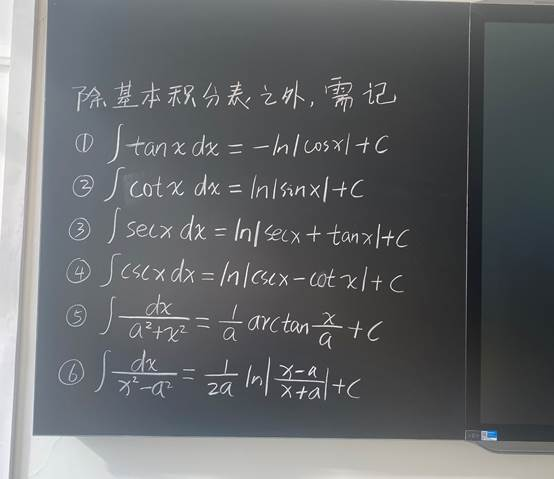 除基本积分表之外,需记
① ∫tanx dx = -ln|cosx|+C
② ∫cotx dx = ln|sinx|+C
③ ∫secx dx = ln|secx+tanx|+C
④ ∫cscx dx = ln|cscx-cotx|+C
⑤ ∫dx/(a²+x²) = 1/a arctan x/a + C
⑥ ∫dx/(x²-a²) = 1/2a ln|(x-a)/(x+a)|+C